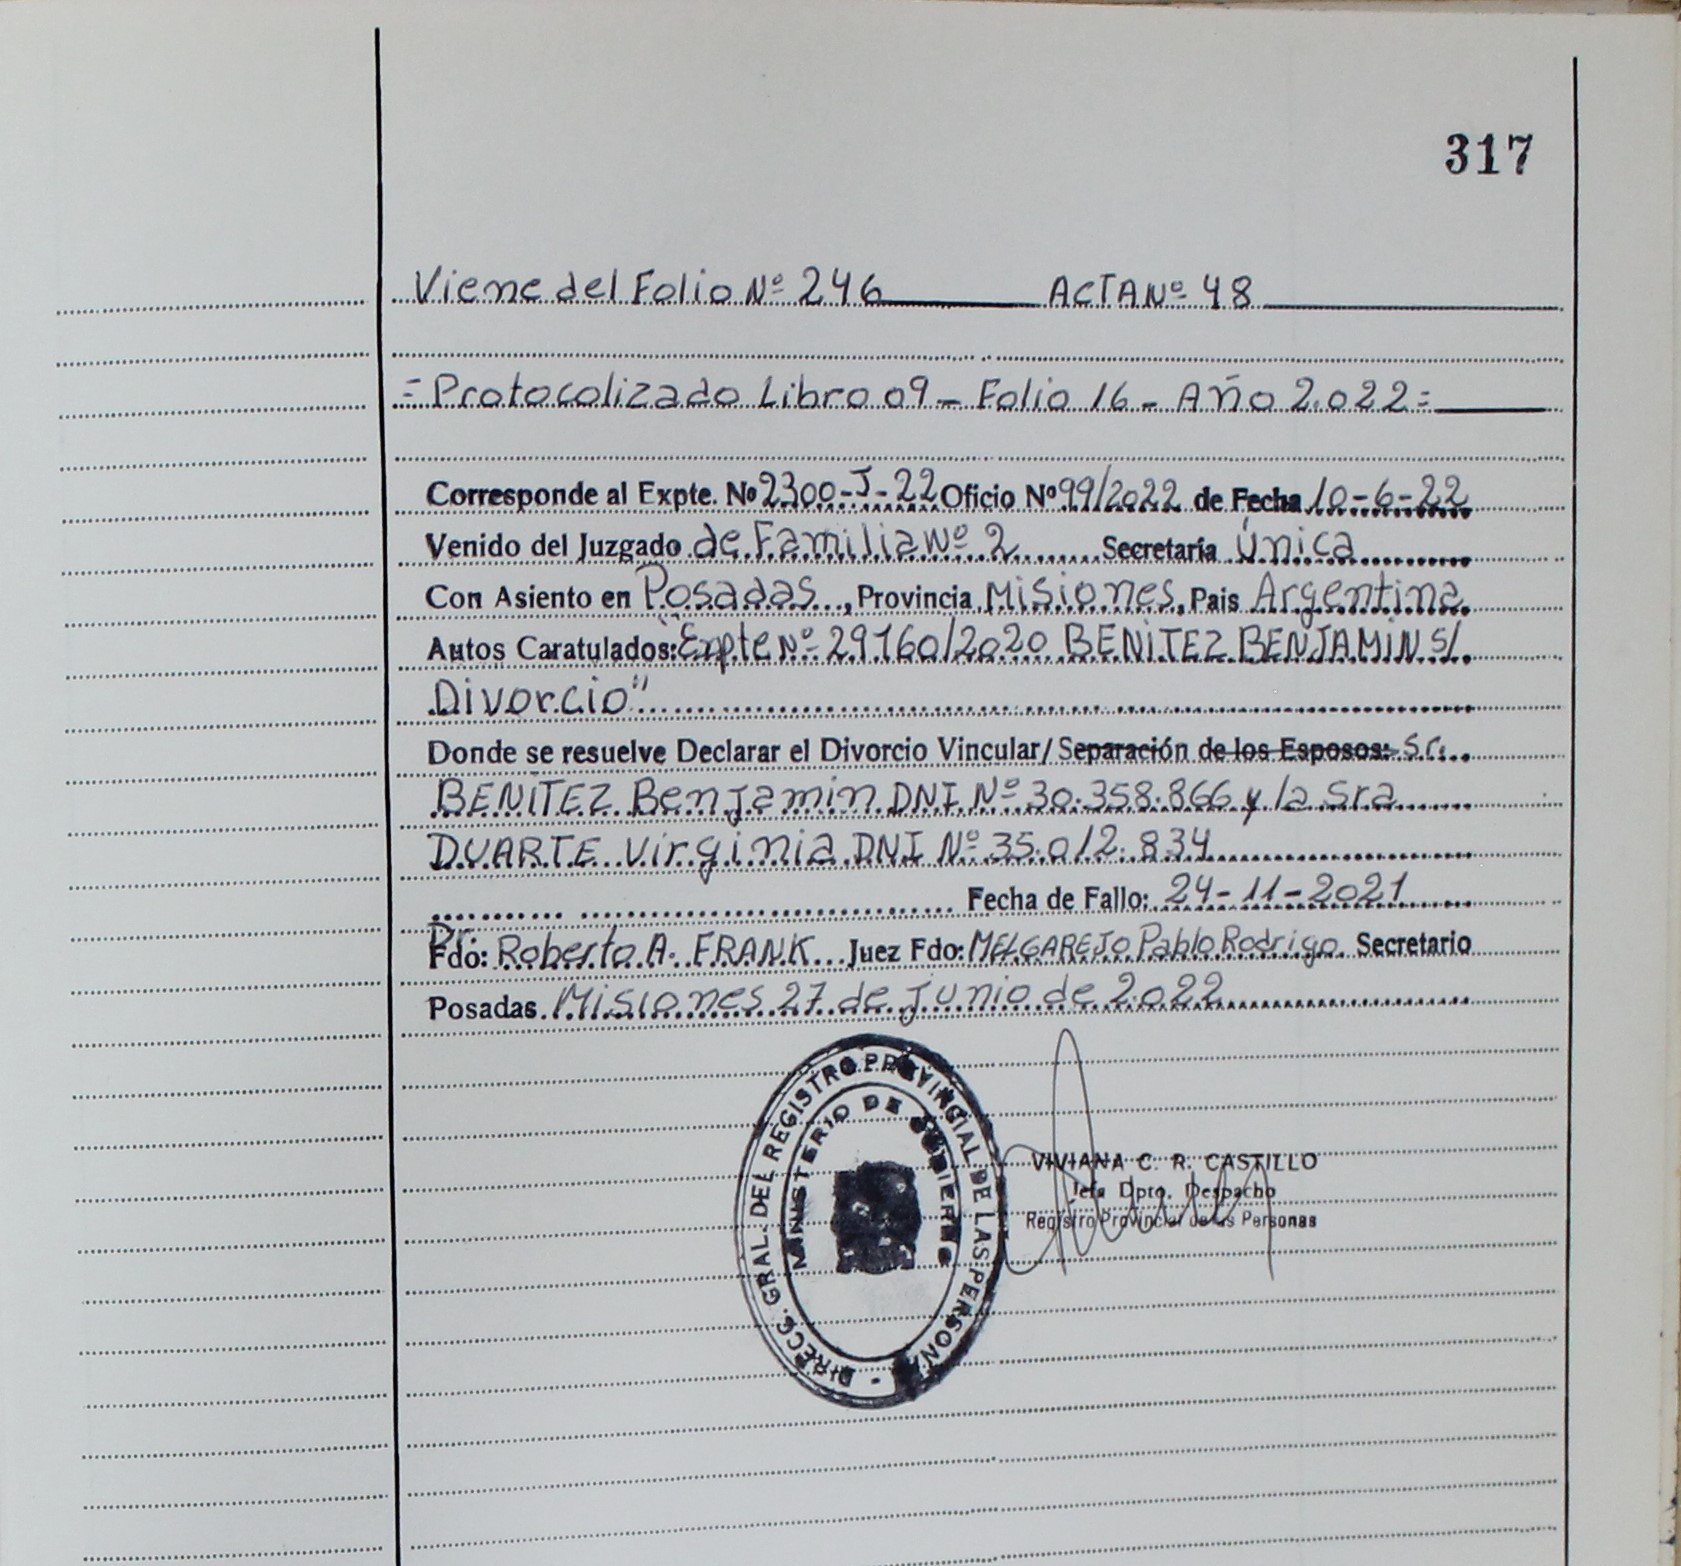 317
Viene del Folio Nº 246 ACTA Nº 48
= Protocolizado Libro 09 - Folio 16 - Año 2.022 =
Corresponde al Expte. Nº 2300-J-22 Oficio Nº 99/2022 de Fecha 10-6-22
Venido del Juzgado de Familia Nº 2 Secretaría Única
Con Asiento en Posadas, Provincia Misiones, Pais Argentina
Autos Caratulados: "Expte Nº 29160/2020 BENITEZ BENJAMIN S/
Divorcio"
Donde se resuelve Declarar el Divorcio Vincular/ Separación de los Esposos: Sr.
BENITEZ Benjamin DNI Nº 30.358.866 y la Sra
DUARTE Virginia DNI Nº 35.012.834
Fecha de Fallo: 24-11-2021
Dr.
Fdo: Roberto A. FRANK Juez Fdo: MELGAREJO Pablo Rodrigo Secretario
Posadas Misiones 27 de Junio de 2022
DIRECC. GRAL. DEL REGISTRO PROVINCIAL DE LAS PERSONAS -
MINISTERIO DE GOBIERNO
VIVIANA C. R. CASTILLO
Jefa Dpto. Despacho
Registro Provincial de las Personas